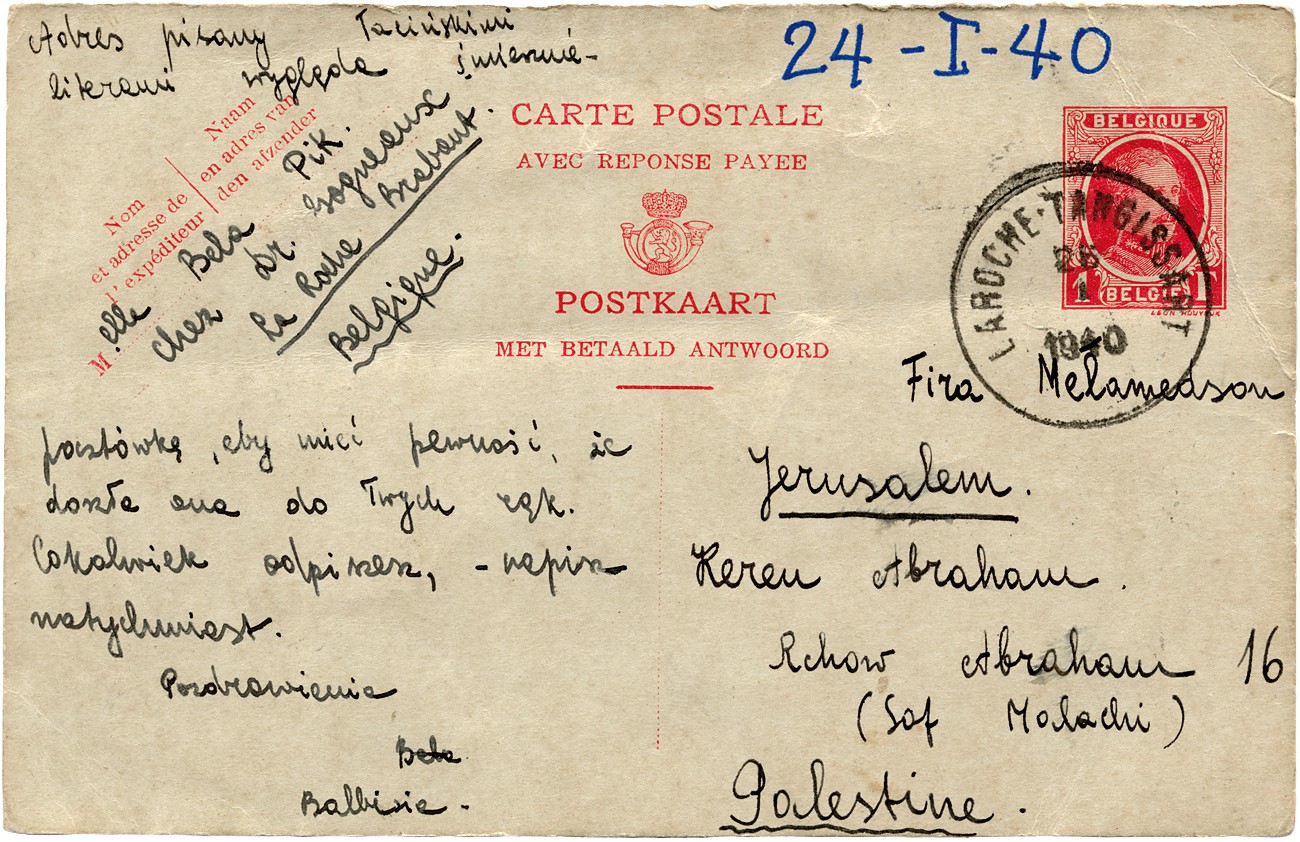 Adres pisany łacińskimi
literami wygląda śmiesznie -
24 - I - 40
Naam
en adres van
den afzender
Nom
et adresse de
l'expéditeur
M. elle Bela Pik.
chez Dr.
La Roche Brabant.
Belgique.
CARTE POSTALE
AVEC REPONSE PAYEE
POSTKAART
MET BETAALD ANTWOORD
BELGIQUE
1 BELGIË 1
LAROCHE-TANGISSART
1
1940
pocztówkę, aby mieć pewność, że
doszła ona do Twych rąk.
Cokolwiek odpiszesz, - napisz
natychmiast.
Pozdrowienia
Bela
Balbisia -
Fira Melamedson
Jerusalem.
Keren Abraham.
Rchow Abraham 16
(Sof Malachi)
Palestine.